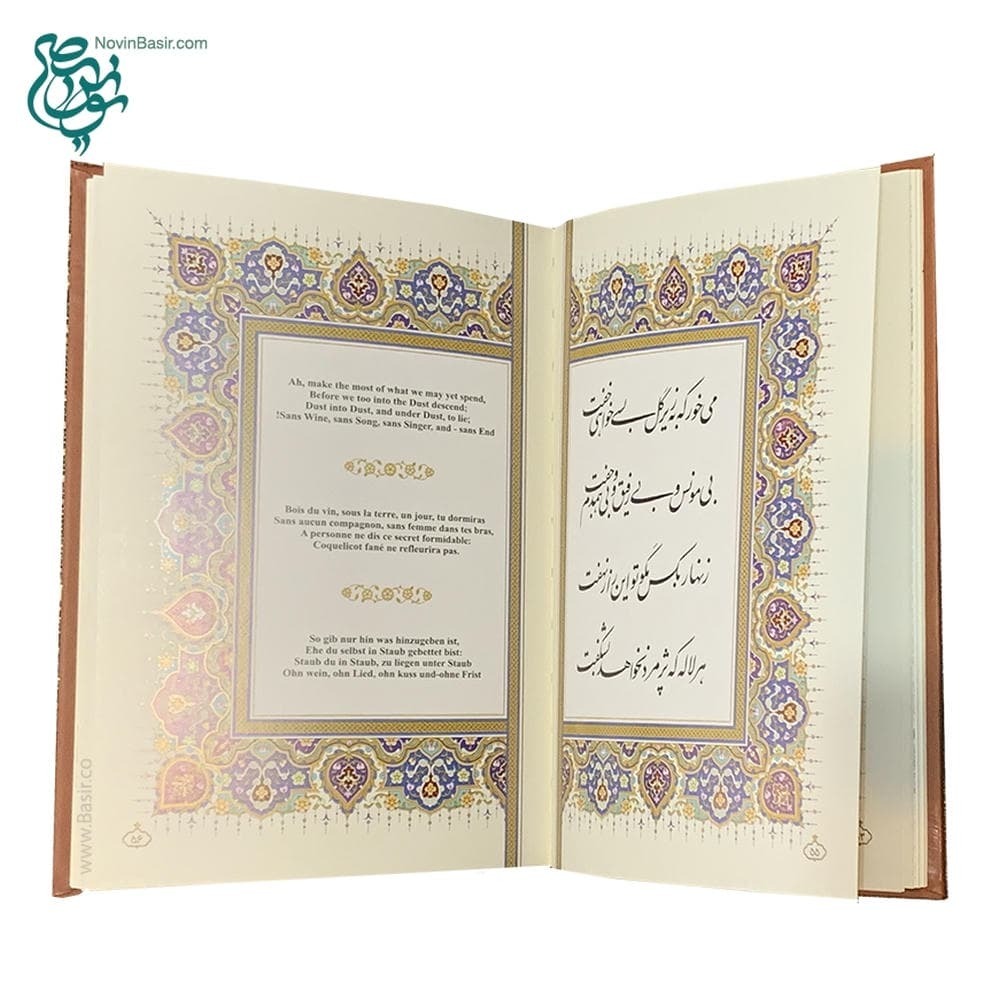 NovinBasir.com
نوین بصیر
می خور که به زیر گل بسی خواهی خفت
بی مونس و بی رفیق و بی همدم و جفت
زنهار به کس مگو تو این راز نهفت
هر لاله که پژمرد نخواهد بشکفت
۵۵
Ah, make the most of what we may yet spend,
Before we too into the Dust descend;
Dust into Dust, and under Dust, to lie;
!Sans Wine, sans Song, sans Singer, and - sans End
Bois du vin, sous la terre, un jour, tu dormiras
Sans aucun compagnon, sans femme dans tes bras,
A personne ne dis ce secret formidable:
Coquelicot fané ne refleurira pas.
So gib nur hin was hinzugeben ist,
Ehe du selbst in Staub gebettet bist:
Staub du in Staub, zu liegen unter Staub
Ohn wein, ohn Lied, ohn kuss und-ohne Frist
۵۶
www.Basir.co